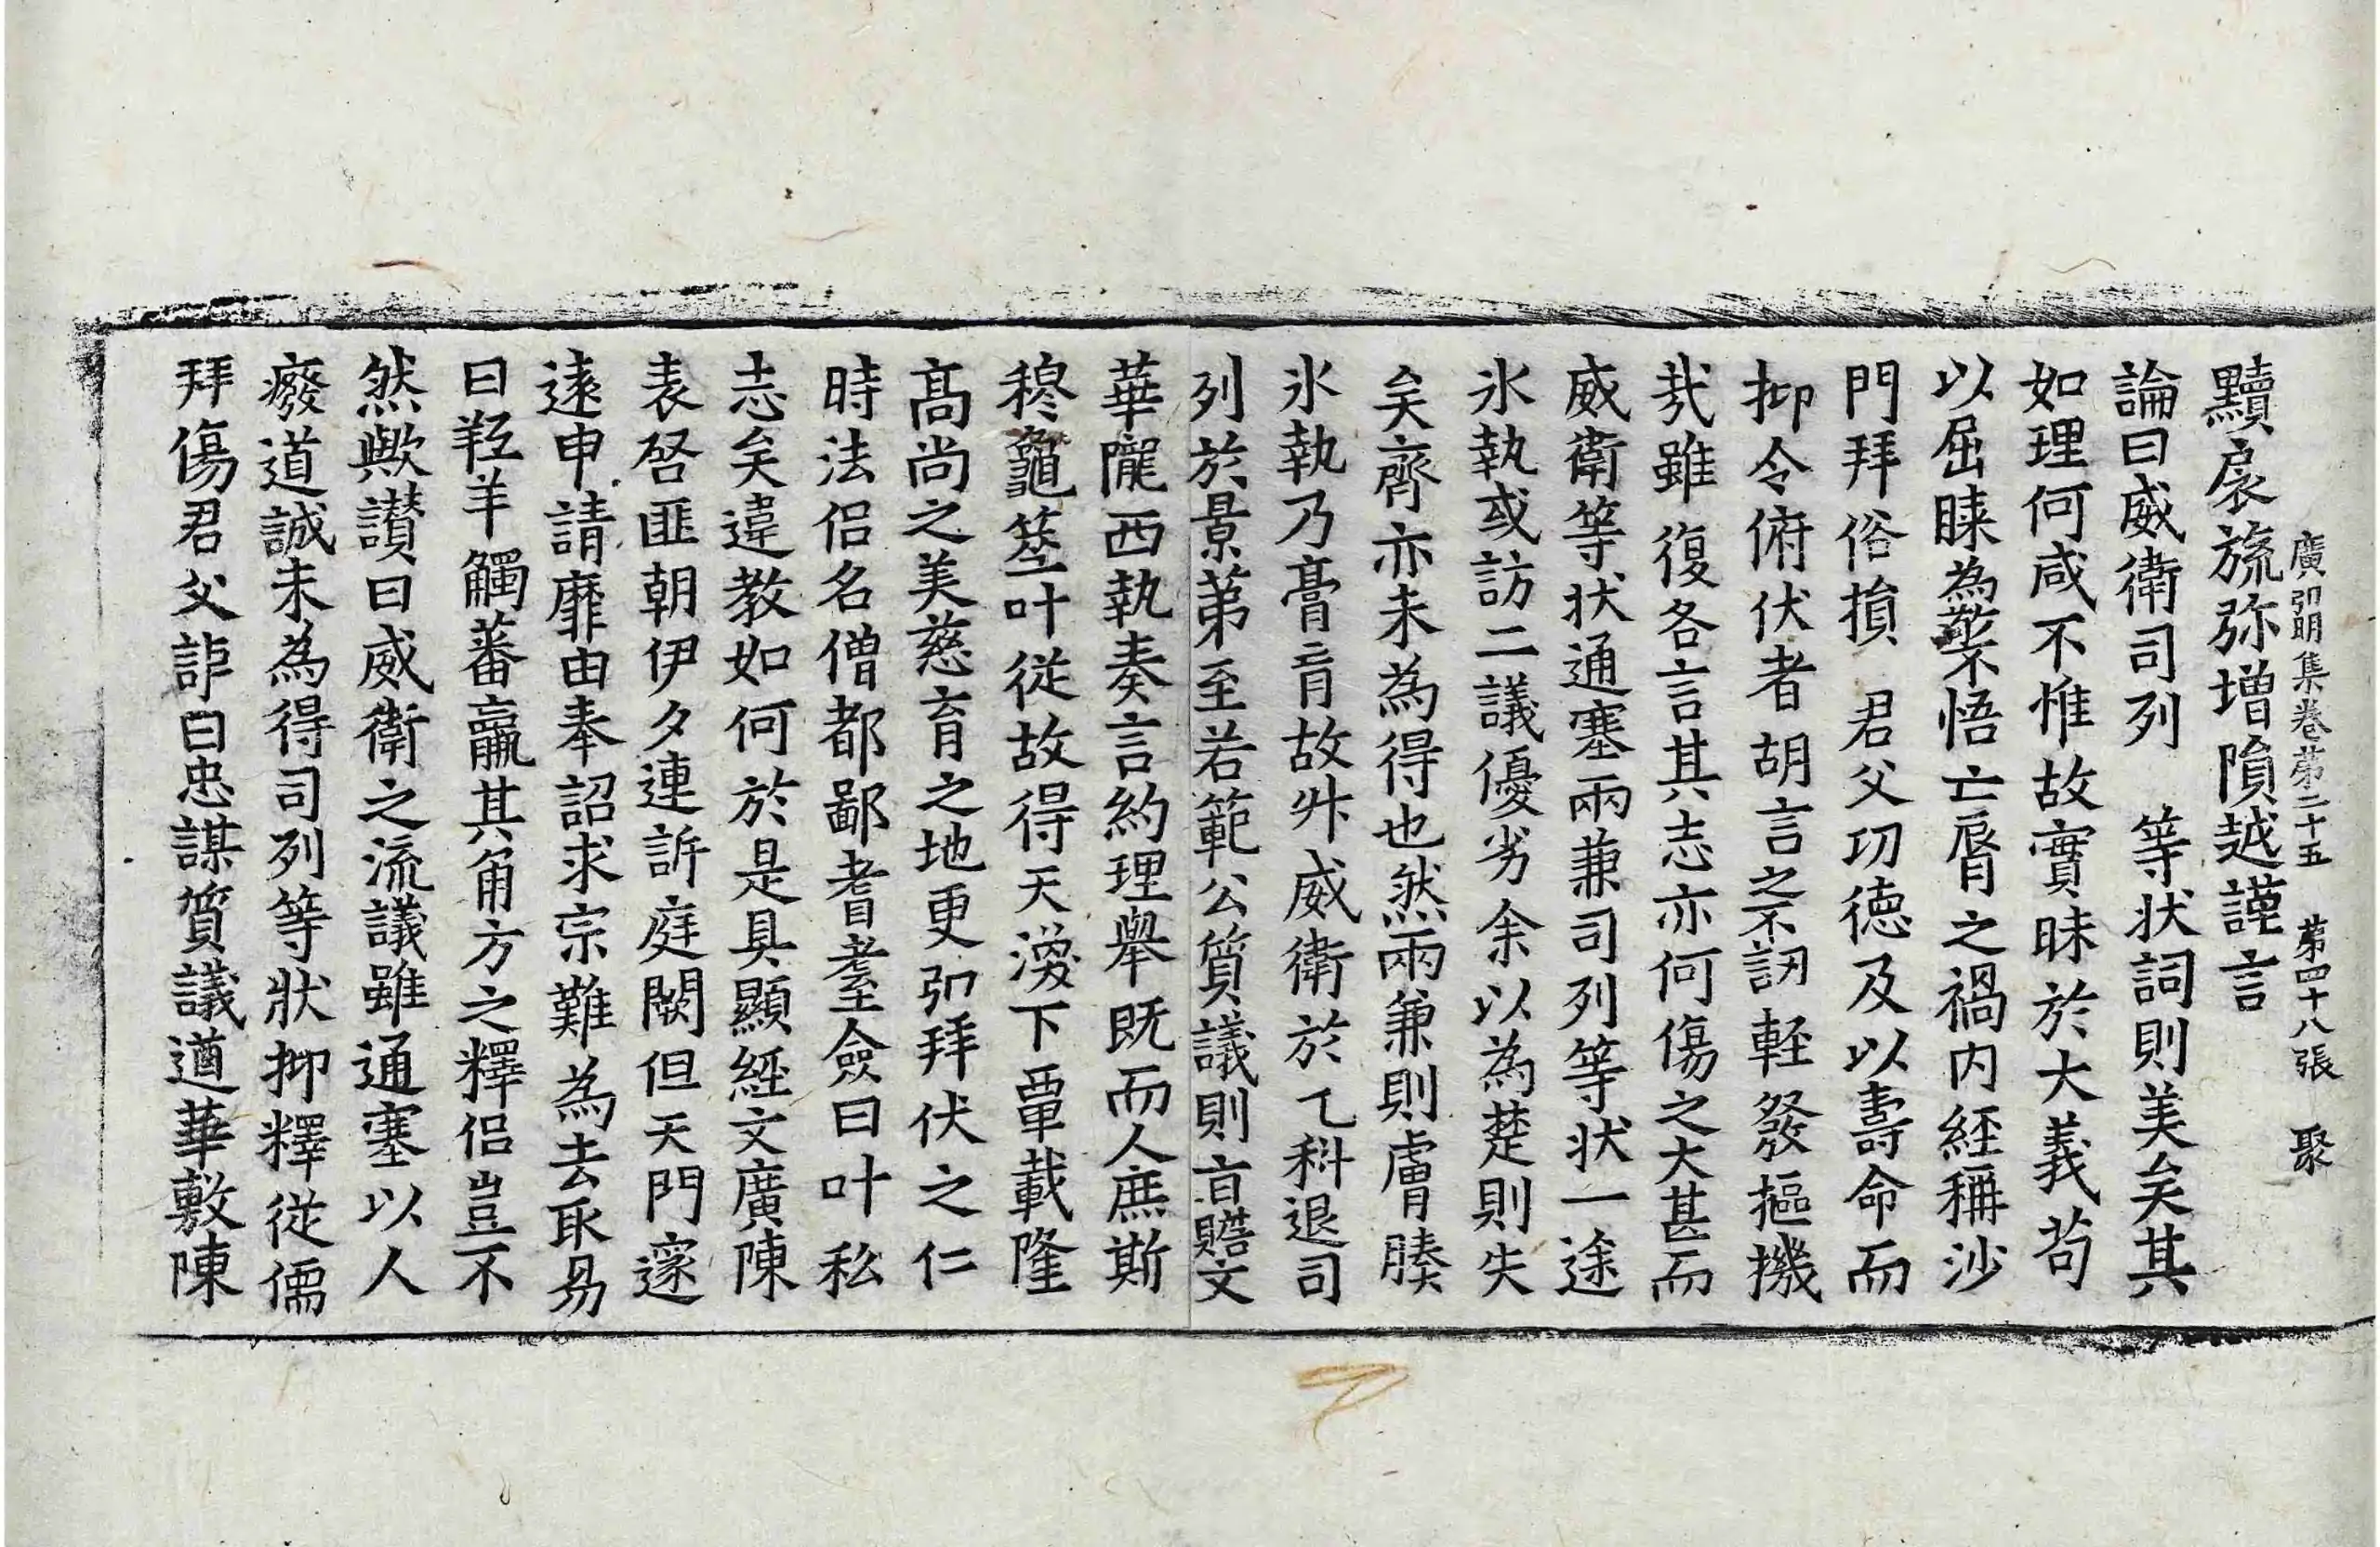 廣弘明集卷第二十五 第四十八張 聚
黷扆旒弥增隕越謹言
論曰威衛司列 等状詞則美矣其
如理何咸不惟故實昧於大義苟
以屈睐為榮不悟亡脣之禍内経稱沙
門拜俗損 君父功德及以壽命而
抑令俯伏者胡言之不訒輕發摳機
㦲雖復各言其志亦何傷之大甚而
威衛等状通塞兩兼司列等状一途
氷執或訪二議優劣余以為楚則失
矣齊亦未為得也然兩兼則膚腠
氷執乃膏肓故升威衛於乙科退司
列於景第至若範公質議則言贍文
華隴西執奏言約理舉既而人庶斯
穆龜筮叶從故得天渙下覃載隆
髙尚之美慈育之地更弘拜伏之仁
時法侣名僧都鄙耆耋僉曰叶私
志矣違教如何於是具顯經文廣陳
表啓匪朝伊夕連訴庭闕但天門邃
遠申請靡由奉詔求宗難為去取易
曰羝羊觸蕃羸其角方之釋侣豈不
然歟讃曰威衛之流議雖通塞以人
癈道誠未為得司列等狀抑釋從儒
拜傷君父詎曰忠謀質議遒華敷陳